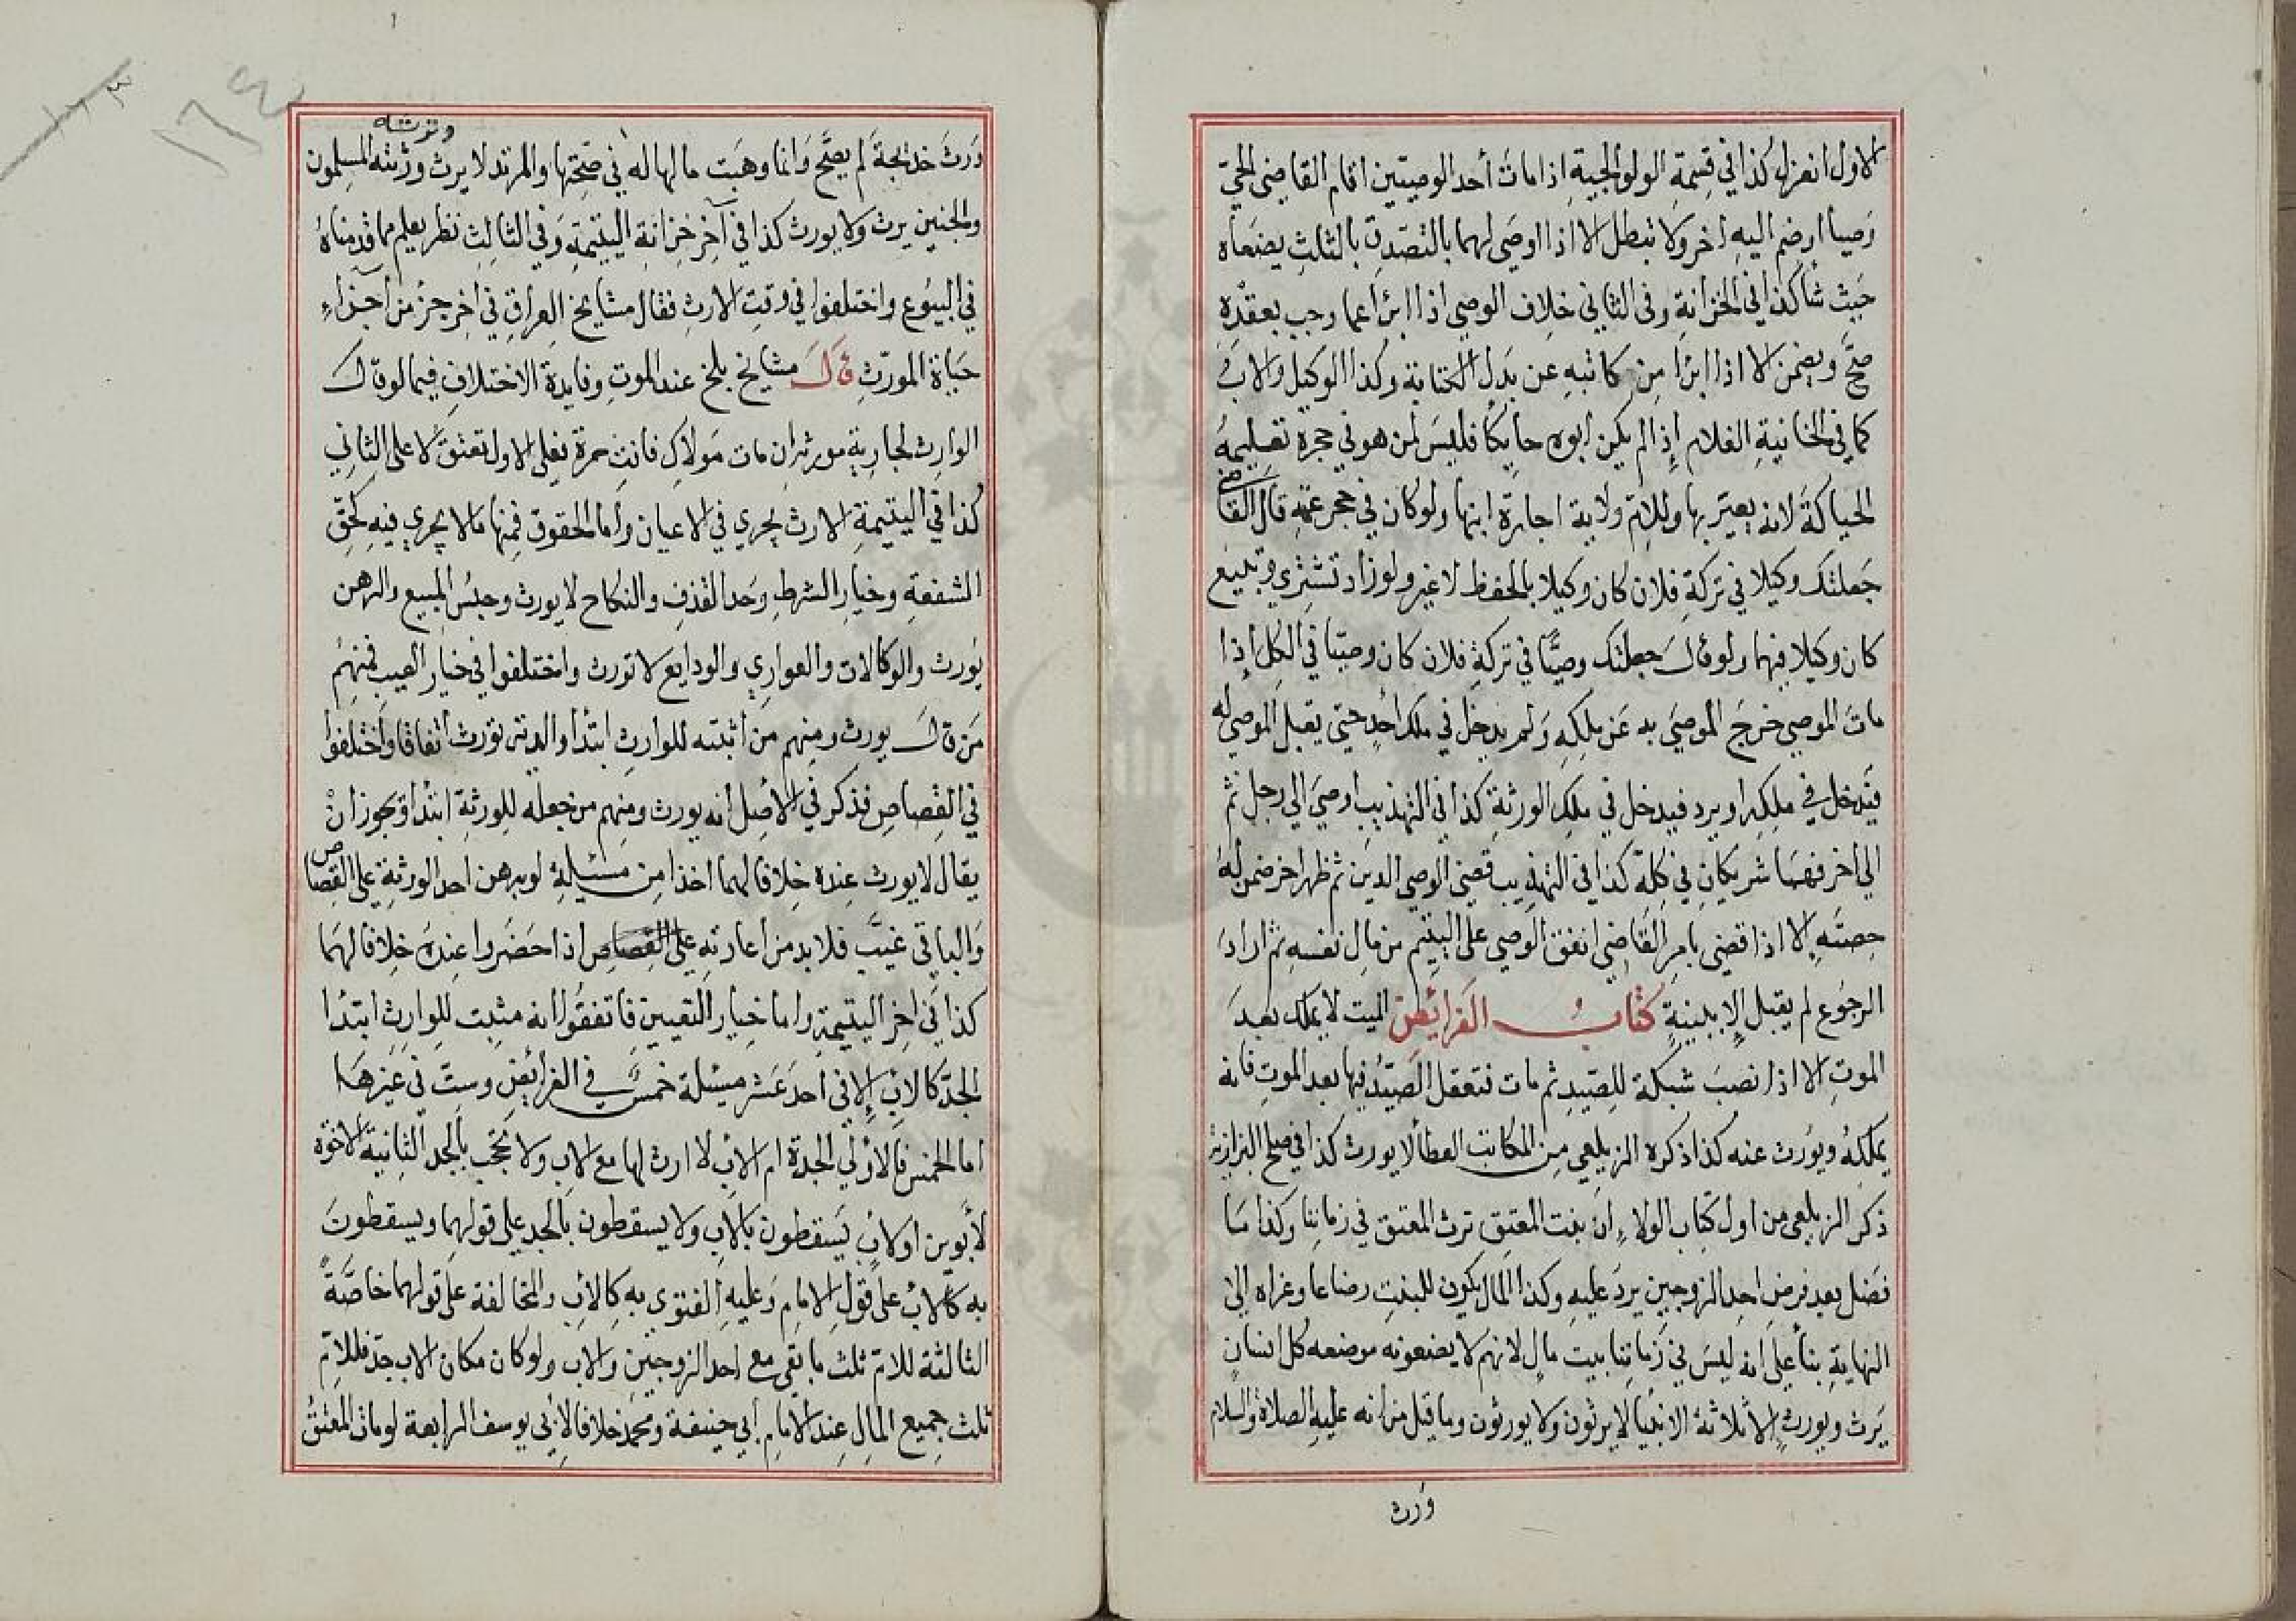 الاول انعزل كذا في قسمة الولوالجية اذا مات أحد الوصيتين اقام القاضي الحي
وصيا او ضم اليه اخر ولا تبطل الا اذا اوصى لهما بالتصدق بالثلث يضعاه
حيث شا كذا في الخزانة وفي الثاني خلاف الوصي اذا ابرأ عما وجب بعقده
صح ويضمن الا اذا ابرأ من كاتبه عن بدل الكتابة وكذا الوكيل والاب
كما في الخانية الغلام إذ الم يكن أبوه حايكا فليس لمن هو في حجره تعليمه
الحياكة لانه يعير بها وللام ولاية اجارة ابنها ولو كان في حجر عمه قال القاضي
جعلتك وكيلا في تركة فلان كان وكيلا بالحفظ لا غير ولو زاد تشتري وتبيع
كان وكيلا فيهما ولو قال جعلتك وصيا في تركة فلان كان وصيا في الكل إذا
مات الموصي خرج الموصى به عن ملكه ولم يدخل في ملك احد حتى يقبل الموصى له
فيدخل في ملكه او يرد فيدخل في ملك الورثة كذا في التهذيب اوصى الى رجل ثم
الى أخر فهما شريكان في كله كذا في التهذيب قضى الوصي الدين ثم ظهر اخر ضمن له
حصته الا اذا قضى بامر القاضي انفق الوصي على اليتيم من مال نفسه ثم اراد
الرجوع لم يقبل إلا ببينة كتاب الفرائض الميت لا يملك بعد
الموت الا اذا نصب شبكة للصيد ثم مات فتعقل الصيد فيها بعد الموت فانه
يملكه ويورث عنه كذا ذكره الزيلعي من المكاتب العطا لا يورث كذا في صلح البزازية
ذكر الزيلعي من اول كتاب الولاء ان بنت المعتق ترث المعتق في زماننا وكذا ما
فضل بعد فرض احد الزوجين يرد عليه وكذا المال يكون للبنت رضاعا وعزاه الى
النهاية بنأ على انه ليس في زماننا بيت مال لانهم لا يضعونه موضعه كل انسان
يرث ويورث الا ثلاثة الانبيا لا يرثون ولا يورثون وما قيل من انه عليه الصلاة والسلام
ورث
١٦٣
١٦٤
وترثته
ورث خديجة لم يصح وانما وهبت مالها له في صحتها والمرتد لا يرث ورثته المسلمون
والجنين يرث ولا يورث كذا في آخر خزانة اليتيمة وفي الثالث نظر يعلم مما قدمناه
في البيوع واختلفوا في وقت الارث فقال مشايخ العراق في اخر جزء من اجزاء
حياة المورث قال مشايخ بلخ عند الموت وفايدة الاختلاف فيما لو قال
الوارث لجارية مورثه ان مات مولاك فانت حرة فعلى الاول تعتق لا على الثاني
كذا في اليتيمة الارث يجري في الاعيان وأما الحقوق فمنها ما لا يجري فيه كحق
الشفعة وخيار الشرط وحد القذف والنكاح لا يورث وحبس المبيع والرهن
يورث والوكالات والعواري والودايع لا تورث واختلفوا في خيار العيب فمنهم
من قال يورث ومنهم من أثبته للوارث ابتدأ والدية تورث اتفاقا واختلفوا
في القصاص فذكر في الأصل أنه يورث ومنهم من جعله للورثة ابتدأ ويجوز ان
يقال لا يورث عنده خلافا لهما اخذا من مسئلة لو برهن احد الورثة على القصاص
والباقي غيب فلا بد من أعادته على القصاص اذا حضروا عنده خلافا لهما
كذا في اخر اليتيمة واما خيار التعيين فاتفقوا انه مثبت للوارث ابتدا
الجد كالاب إلا في أحد عشر مسئلة خمس في الفرائض وست في غيرها
اما الخمس فالاولى الجدة ام الاب لا ارث لها مع الاب ولا تحجب بالجد الثانية الاخوة
لأبوين او لاب يسقطون بالاب ولا يسقطون بالجد على قولهما ويسقطون
به كالاب على قول الامام وعليه الفتوى به كالاب والمخالفة على قولهما خاصة
الثالثة للام ثلث ما بقي مع احد الزوجين والاب ولو كان مكان الاب جد فللام
ثلث جميع المال عند الامام ابي حنيفة ومحمد خلافا لأبي يوسف الرابعة لو مات المعتق